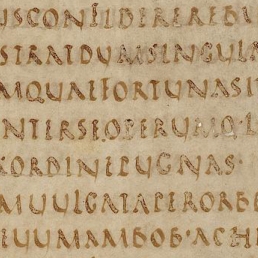 USCONFIDEREREBU
STRATDUMSINGULA
MQUAEFORTUNASIT
NTERSEOPERUMQ·L
XORDINEPUGNAS·
MUULGATAPERORBE
EUUMAMBOB·ACHI